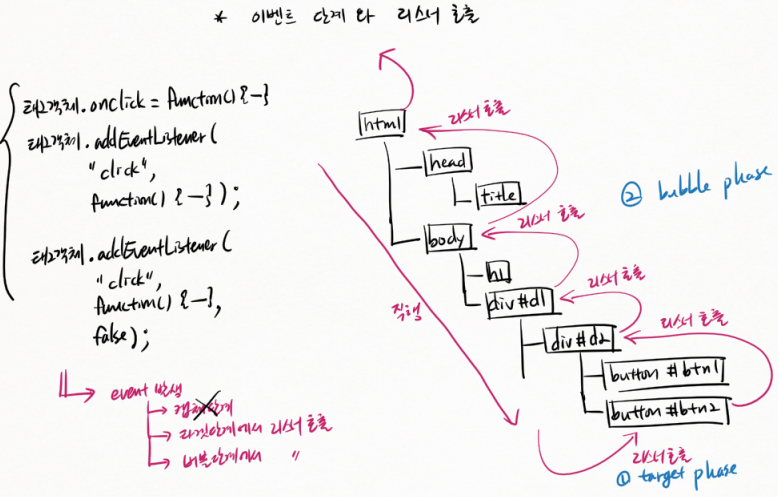 * 이벤트 단계와 리스너 호출
태그객체.onclick = function() {~}
태그객체.addEventListener(
"click",
function() {~});
태그객체.addEventListener(
"click",
function() {~},
false);
event 발생
캡처단계
타겟단계에서 리스너 호출
버블단계에서 〃
html
리스너 호출
head
title
② bubble phase
리스너 호출
body
h1
리스너 호출
div#d1
직행
리스너 호출
div#d2
button #btn1
button #btn2
리스너 호출
① target phase